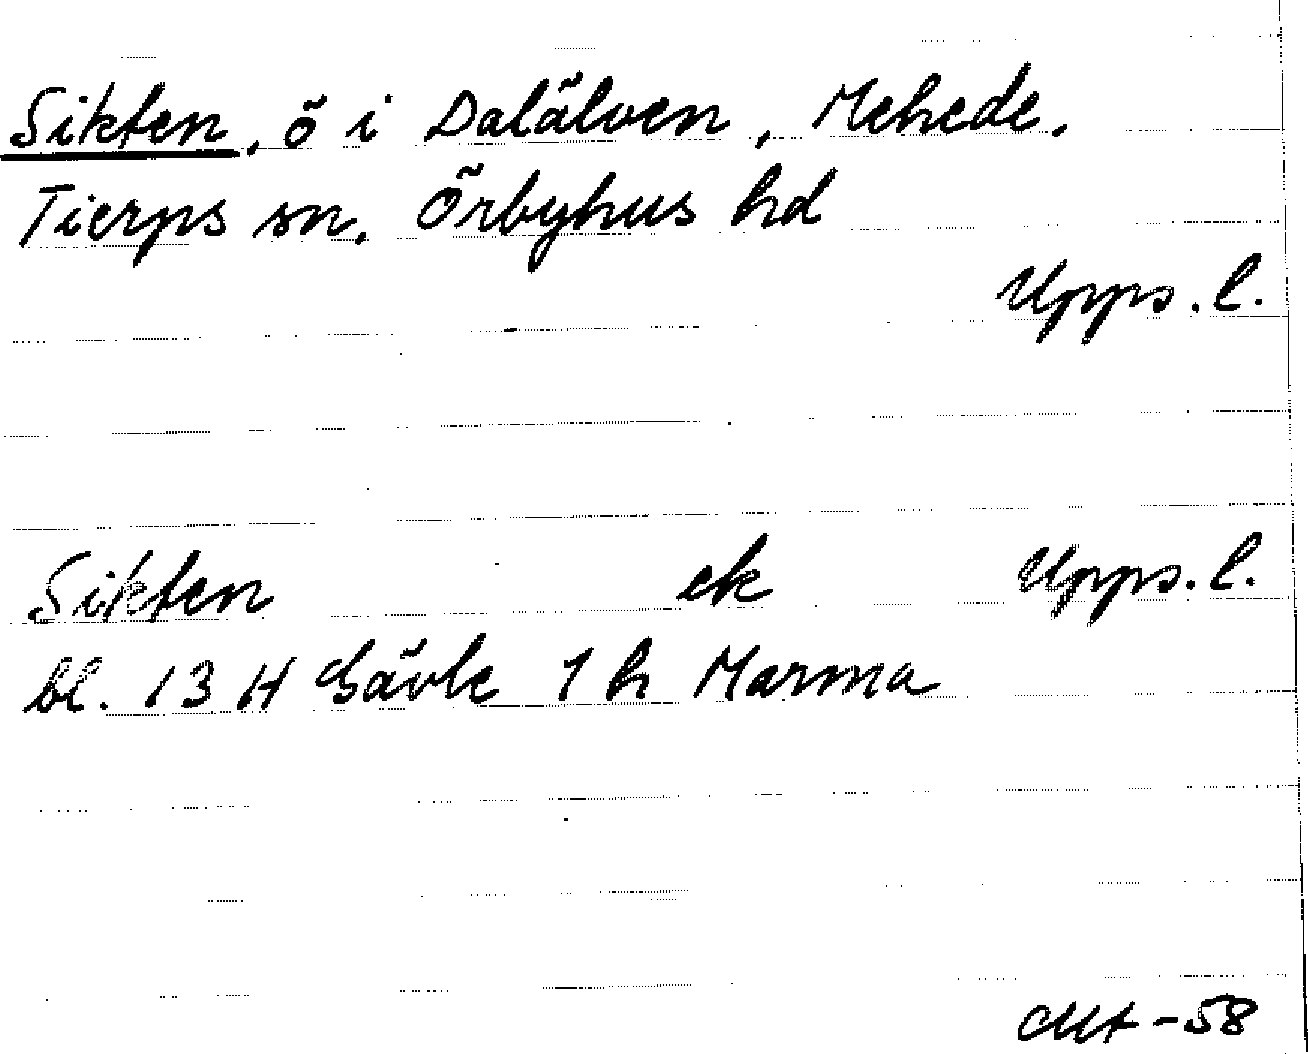 Sikten, ö i Dalälven, Mehede,
Tierps sn. Örbyhus hd
Upps. l.
Sikten ek Upps. l.
bl. 13 H Gävle 1 h Marma
-58